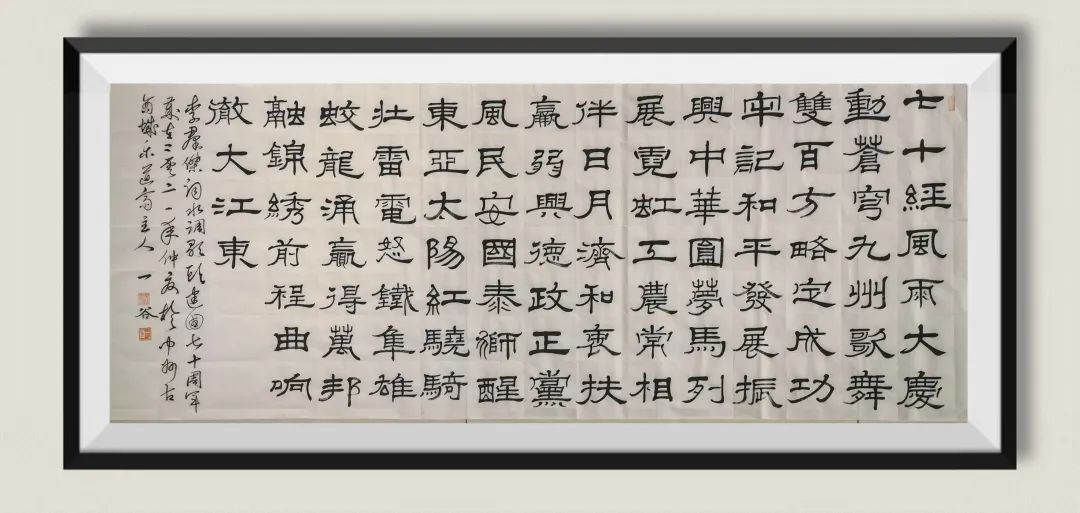 七十經風雨大慶
動蒼穹九州歌舞
雙百方略定成功
牢記和平發展振
興中華圓夢馬列
展霓虹工農常相
伴日月濟和衷扶
羸弱興德政正黨
風民安國泰獅醒
東亞太陽紅驍騎
壯雷電怒鐵隼雄
蛟龍涌贏得萬邦
融錦綉前程曲响
徹大江東
李群傑詞水調歌頭建國七十周年
歲在二零二一年仲夏於中州古
城樂道齋主人一谷